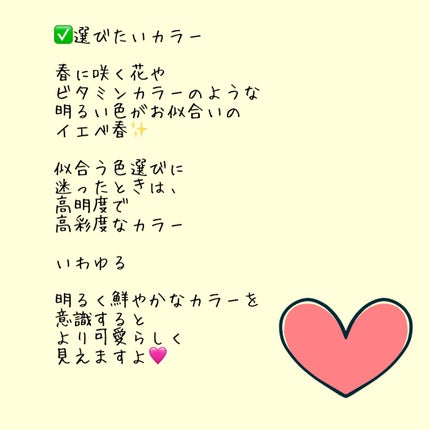 ✅選びたいカラー
春に咲く花や
ビタミンカラーのような
明るい色がお似合いの
イエベ春✨
似合う色選びに
迷ったときは、
高明度で
高彩度なカラー
いわゆる
明るく鮮やかなカラーを
意識すると
より可愛らしく
見えますよ🩷